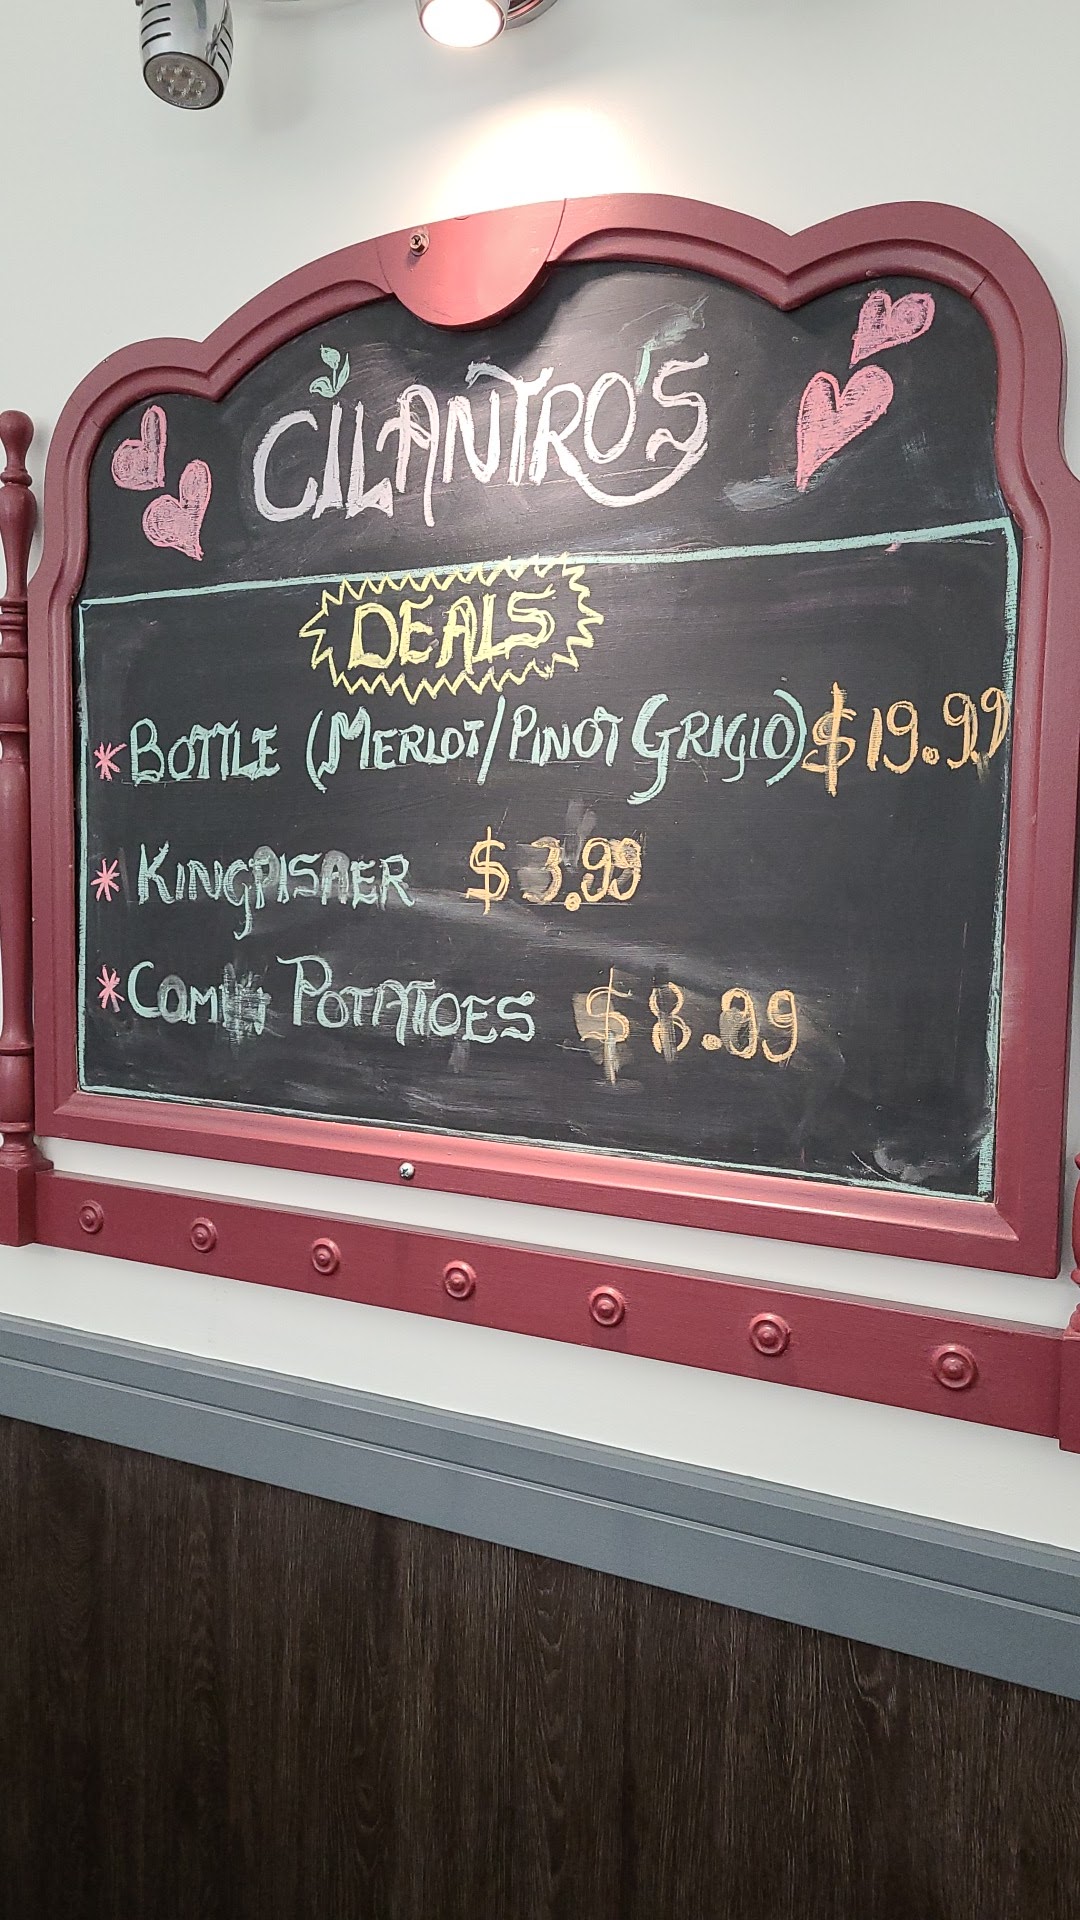 CILANTRO'S
DEALS
* BOTTLE (MERLOT/PINOT GRIGIO) $19.99
* KINGPISAER $3.99
* POTATOES $8.99